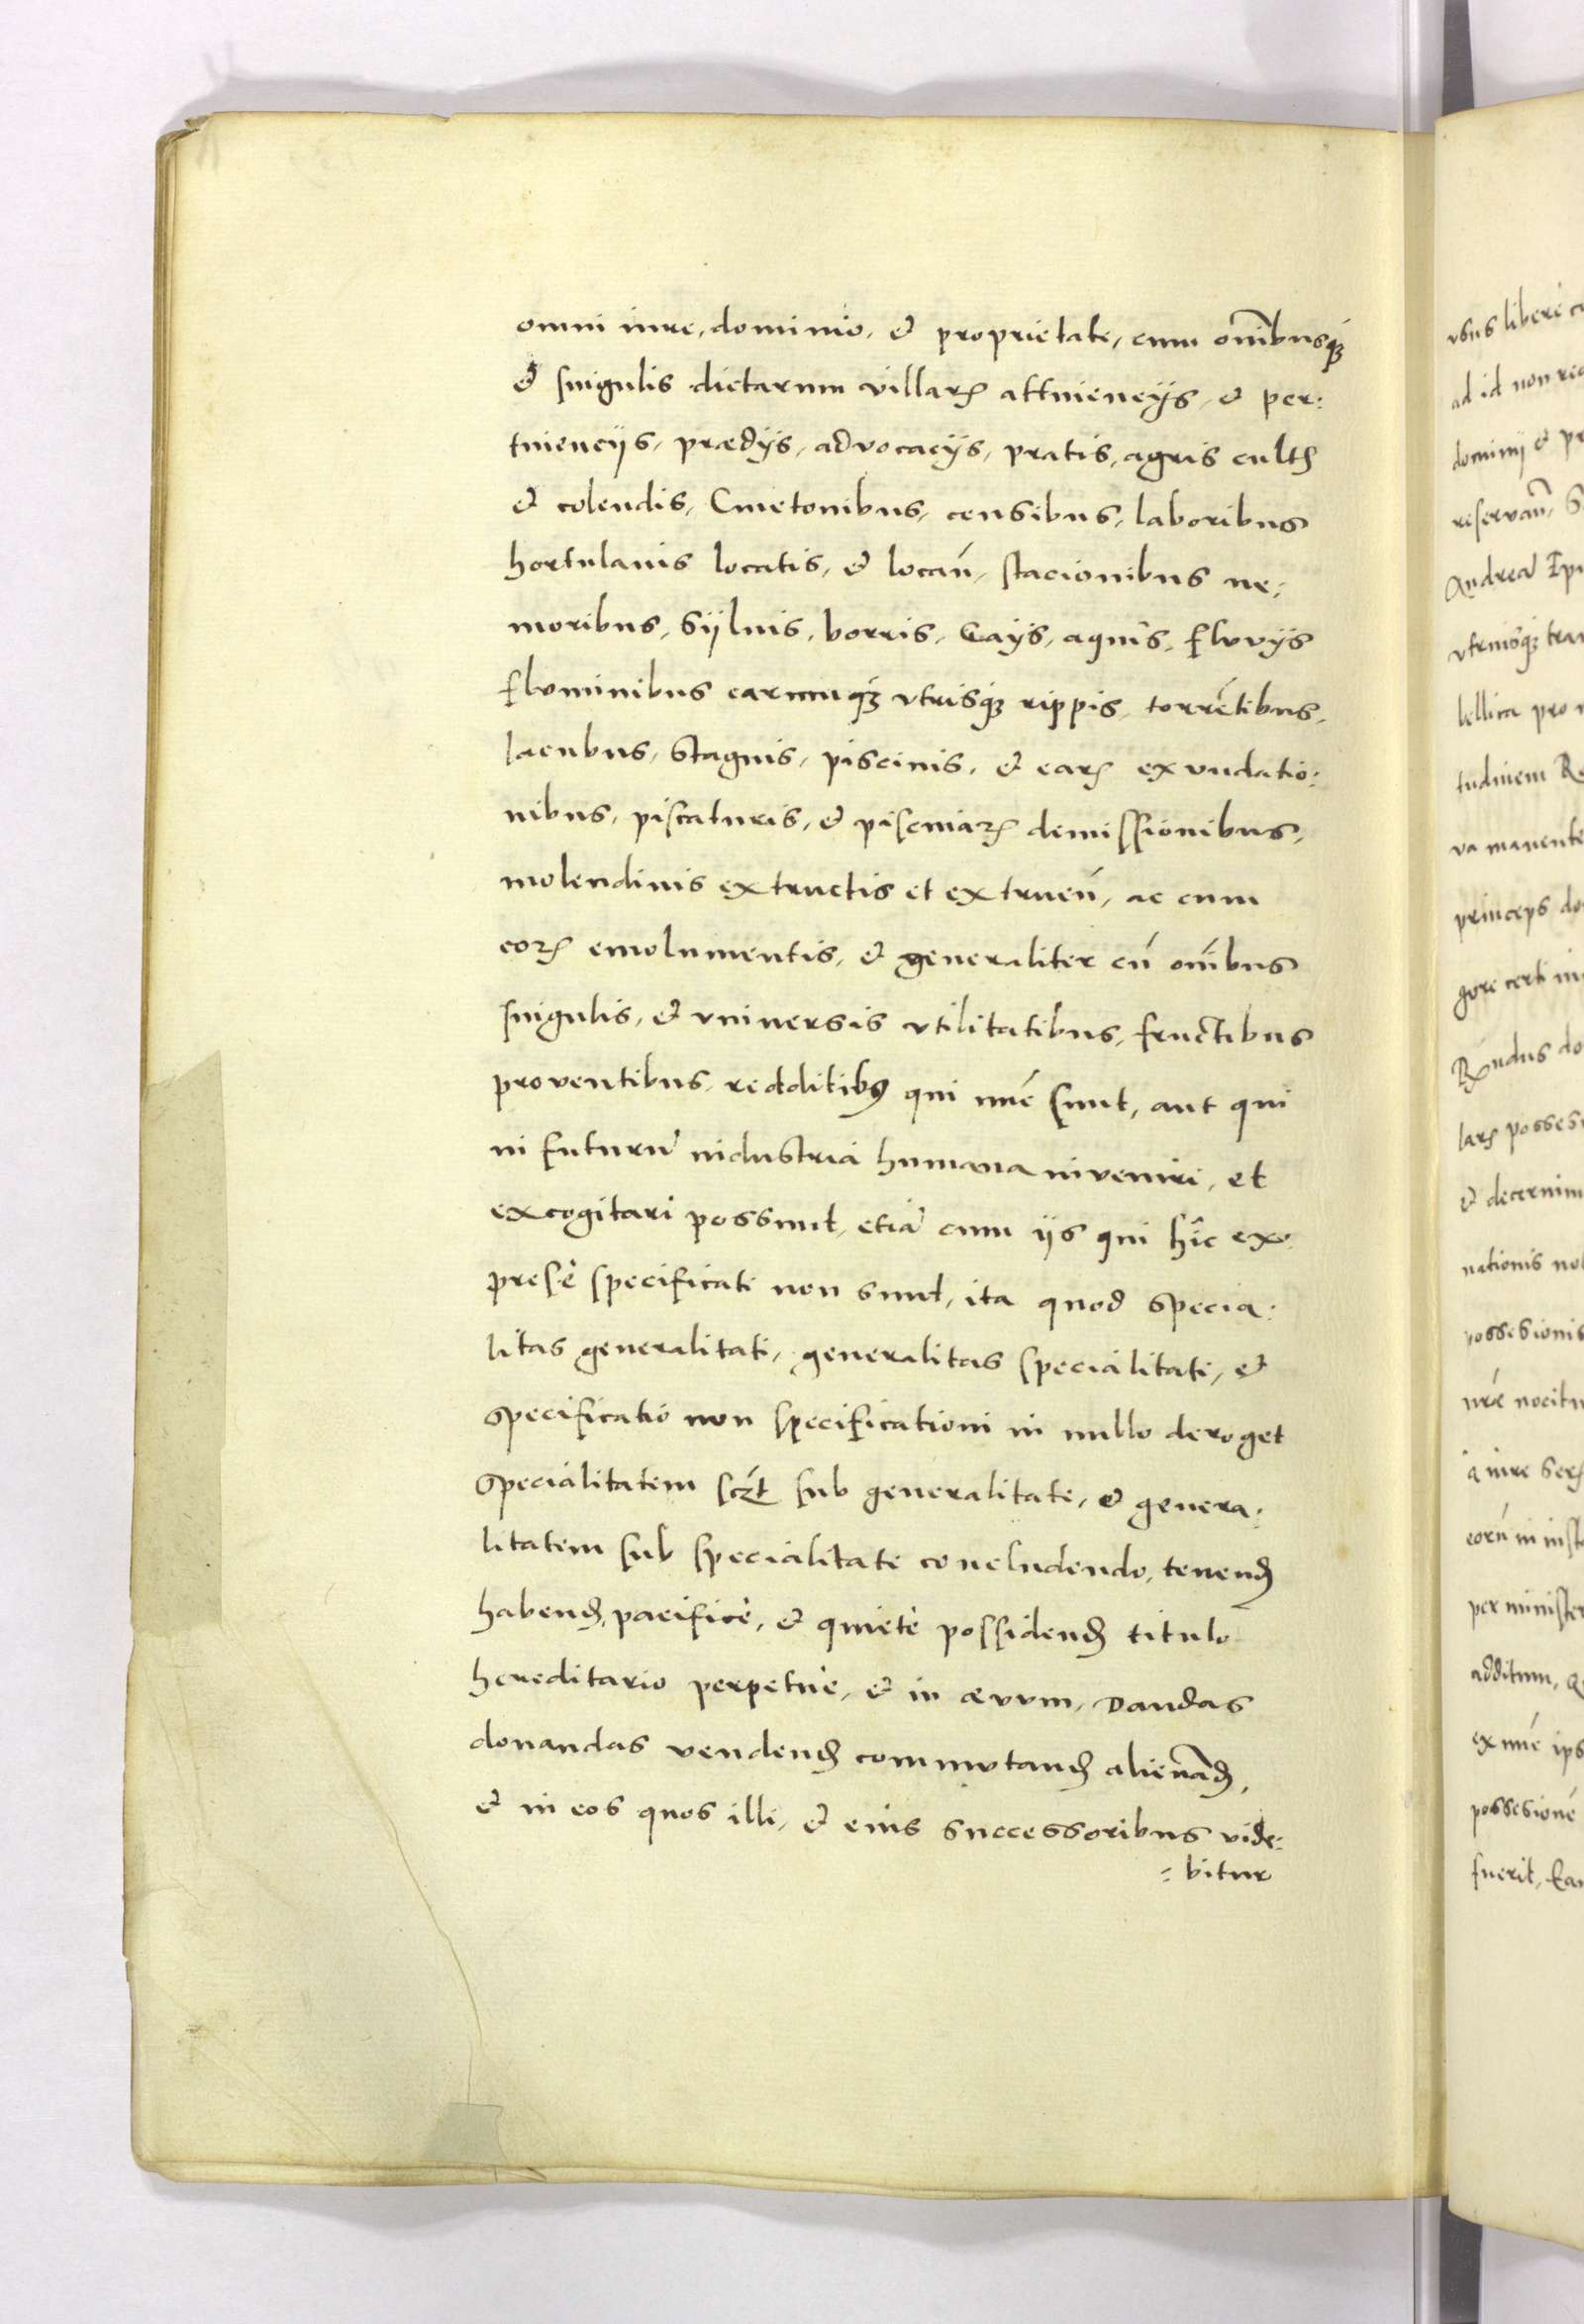 omni iure, dominio, et proprietate, cum omībusq́ꝫ
et singulis dictarum villarꝝ attinencijs, et per:
tinencijs, prædijs, advocacijs, pratis, agris cultꝭ
et colendis, Cmetonibus, censibus, laboribus
hortulanis locatis, et locan̄, stacionibus ne:
moribus, Sijluis, borris, Gays, aquis, fluvijs
fluminibus earumq́ꝫ vtrisq́ꝫ rippis, torrētibus,
lacubus, stagnis, piscinis, et earꝝ exundatio:
nibus, piscaturis, et piscinarꝝ demissionibus,
molendinis extructis et extruen̄, ac cum
eorꝝ emolumentis, et generaliter cū om̄ibus
singulis, et vniversis vtilitatibus, fructibus
proventibus, redditibꝰ qui nūc sunt, aut qui
in futurū industria humana invenire, et
excogitari possunt, etiā cum ijs qui hīc ex:
presè specificati non sunt, ita quod specia:
litas generalitati, generalitas specialitati, et
specificatio non specificationi in nullo deroget
specialitatem sczt sub generalitate, et genera:
litatem sub specialitate concludendo, tenenđ
habenđ, pacificè, et quietè possidenđ titulo
hereditario perpetuè, et in ævum, Dandas
donandas vendenđ commutanđ alienāđ,
et in eos quos illi, et eius successoribus vide:
=bitur
vsus liberè
ad id non
dominij et
reservan̄,
Andrea Epi
vtriusq́ꝫ
lellica pro
tudinem
va manente
princeps
gore certi
Rn̄dus
larꝝ
et
nationis
possesionis
nr̄e
à iure
eorū in
per
additum,
ex nūc ips
possesionē
fuerit,